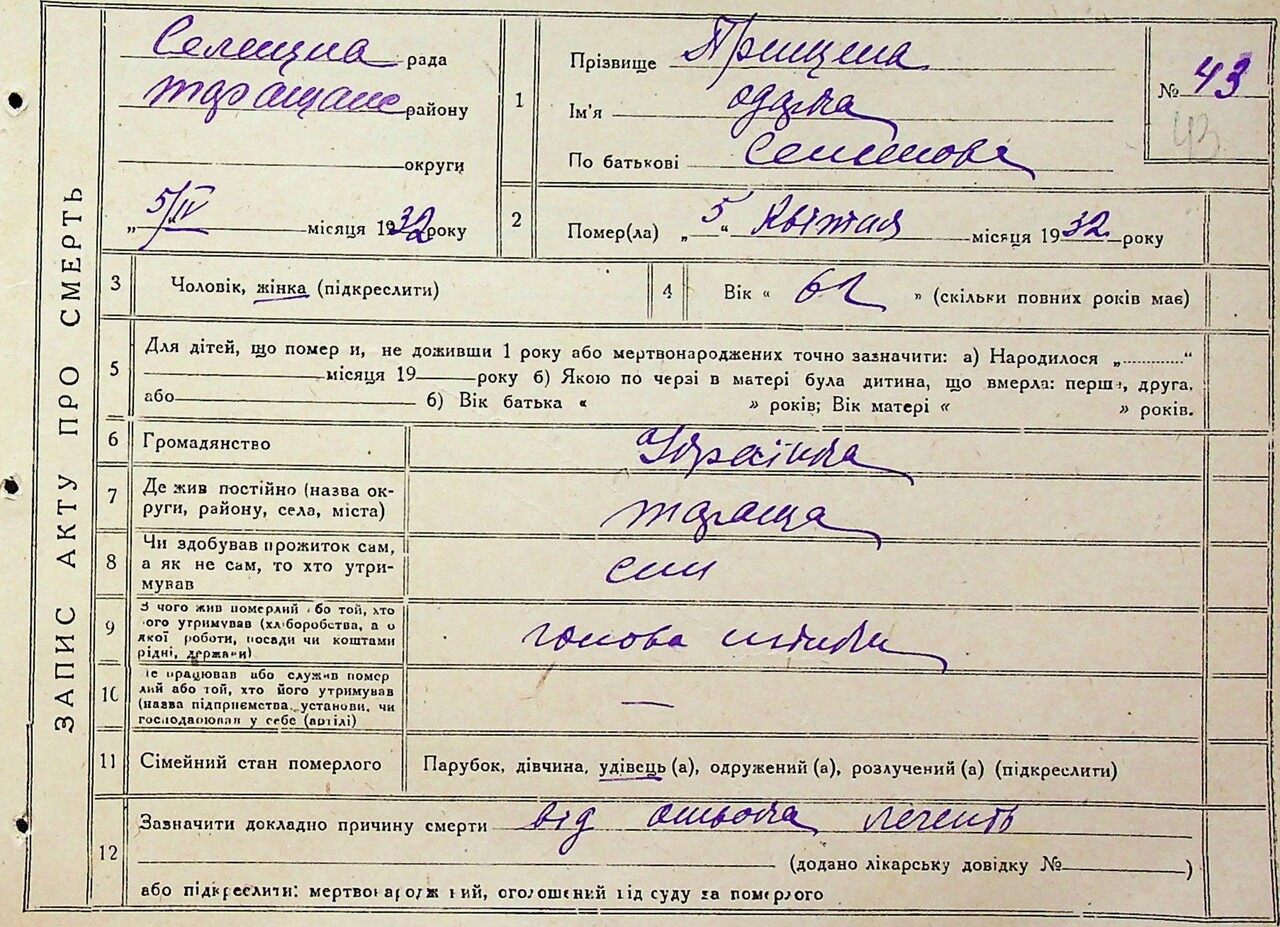 ЗАПИС АКТУ ПРО СМЕРТЬ
рада
району
округи
„5/IV“ місяця 1932 року
1
Прізвище
Ім'я
По батькові
№ 43
43
2
Помер(ла) „5“ Квітня місяця 1932 року
3
Чоловік, жінка (підкреслити)
4
Вік « » (скільки повних років має)
5
Для дітей, що помер и, не доживши 1 року або мертвонароджених точно зазначити: а) Народилося „.............“
місяця 19 року б) Якою по черзі в матері була дитина, що вмерла: перша, друга,
або б) Вік батька « » років; Вік матері « » років.
6
Громадянство
Українка
7
Де жив постійно (назва ок-
руги, району, села, міста)
Тараща
8
Чи здобував прожиток сам,
а як не сам, то хто утри-
мував
син
9
З чого жив померлий або той, хто
його утримував (хліборобства, а о
якої роботи, посади чи коштами
рідні, держави)
голова
10
Де працював або служив помер
лий або той, хто його утримував
(назва підприємства, установи, чи
господарював у себе (артілі)
—
11
Сімейний стан померлого
Парубок, дівчина, удівець (а), одружений (а), розлучений (а) (підкреслити)
12
Зазначити докладно причину смерти від легень
(додано лікарську довідку № )
або підкреслити: мертвонароджений, оголошений від суду за померлого